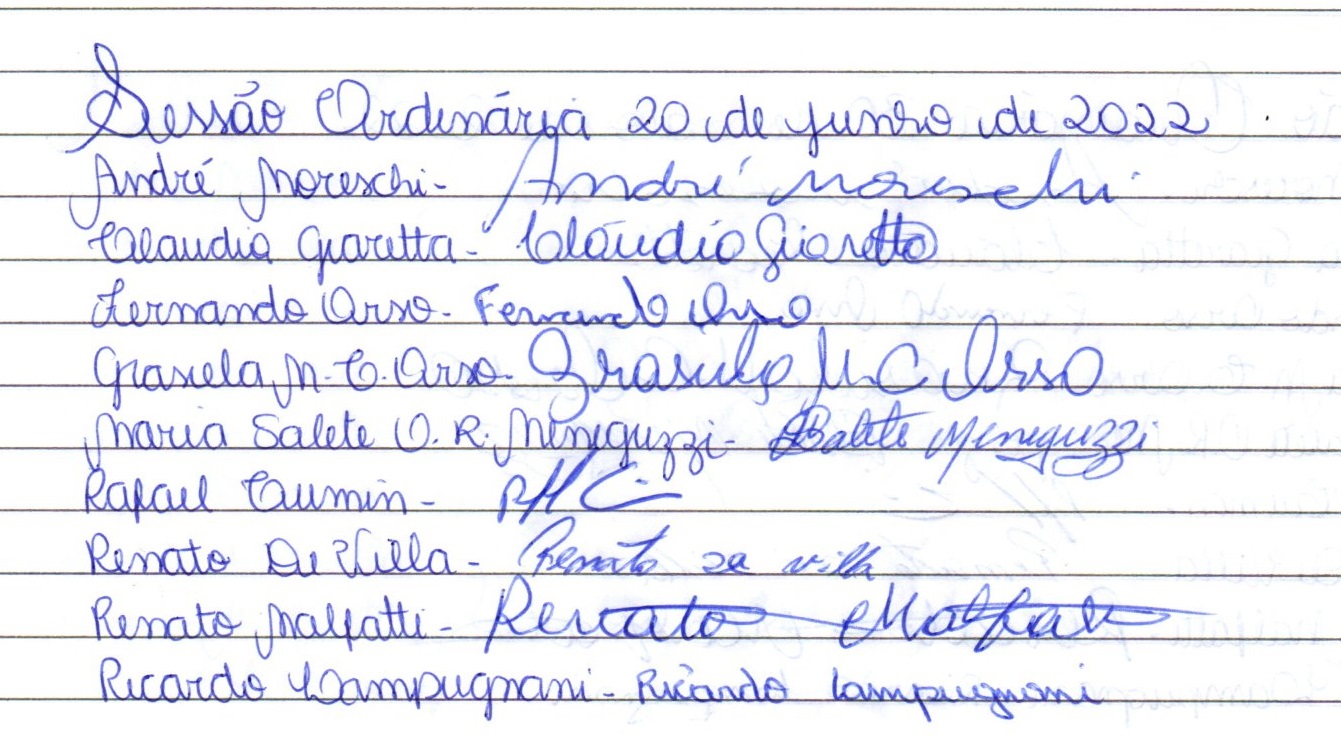 Sessão Ordinária 20 de junho de 2022
André Moreschi- André Moreschi
Claudia Giaretta- Cláudio Giaretta
Fernando Orso- Fernando Orso
Grasiela M. C. Orso- Grasiela M C Orso
Maria Salete O. R. Meneguzzi- Salete Meneguzzi
Rafael Cumin-
Renato De Villa- Renato De villa
Renato Malfatti- Renato Malfatti
Ricardo Lampugnani- Ricardo Lampugnani